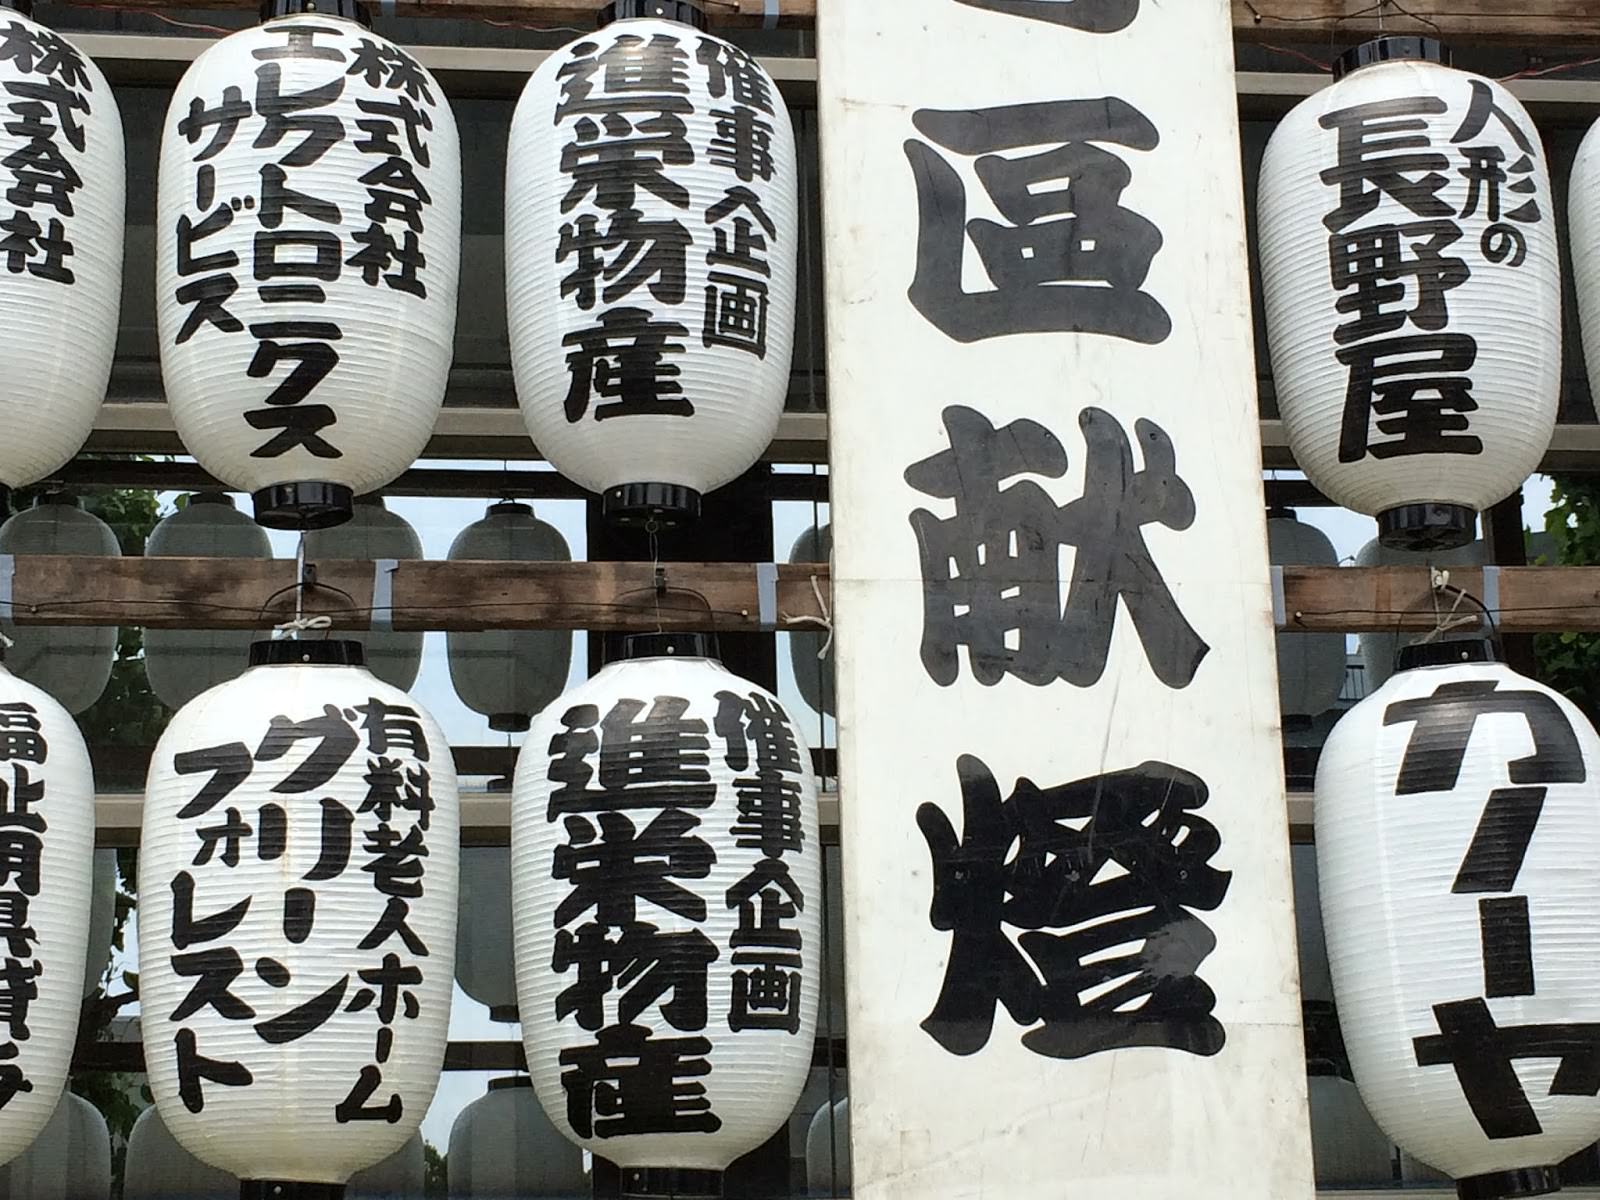 人形の
長野屋
区
献
燈
催事企画
進栄物産
株式会社
エレクトロニクス
サービス
株式会社
カーヤ
催事企画
進栄物産
有料老人ホーム
グリーン
フォレスト
福祉用具貸